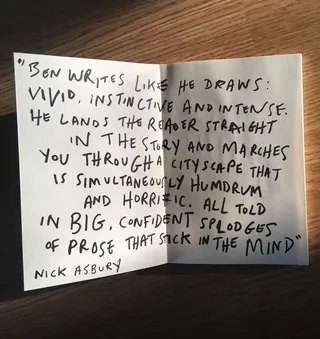 "BEN WRITES LIKE HE DRAWS:
VIVID, INSTINCTIVE AND INTENSE.
HE LANDS THE READER STRAIGHT
IN THE STORY AND MARCHES
YOU THROUGH A CITYSCAPE THAT
IS SIMULTANEOUSLY HUMDRUM
AND HORRIFIC. ALL TOLD
IN BIG, CONFIDENT SPLODGES
OF PROSE THAT STICK IN THE MIND"
NICK ASBURY